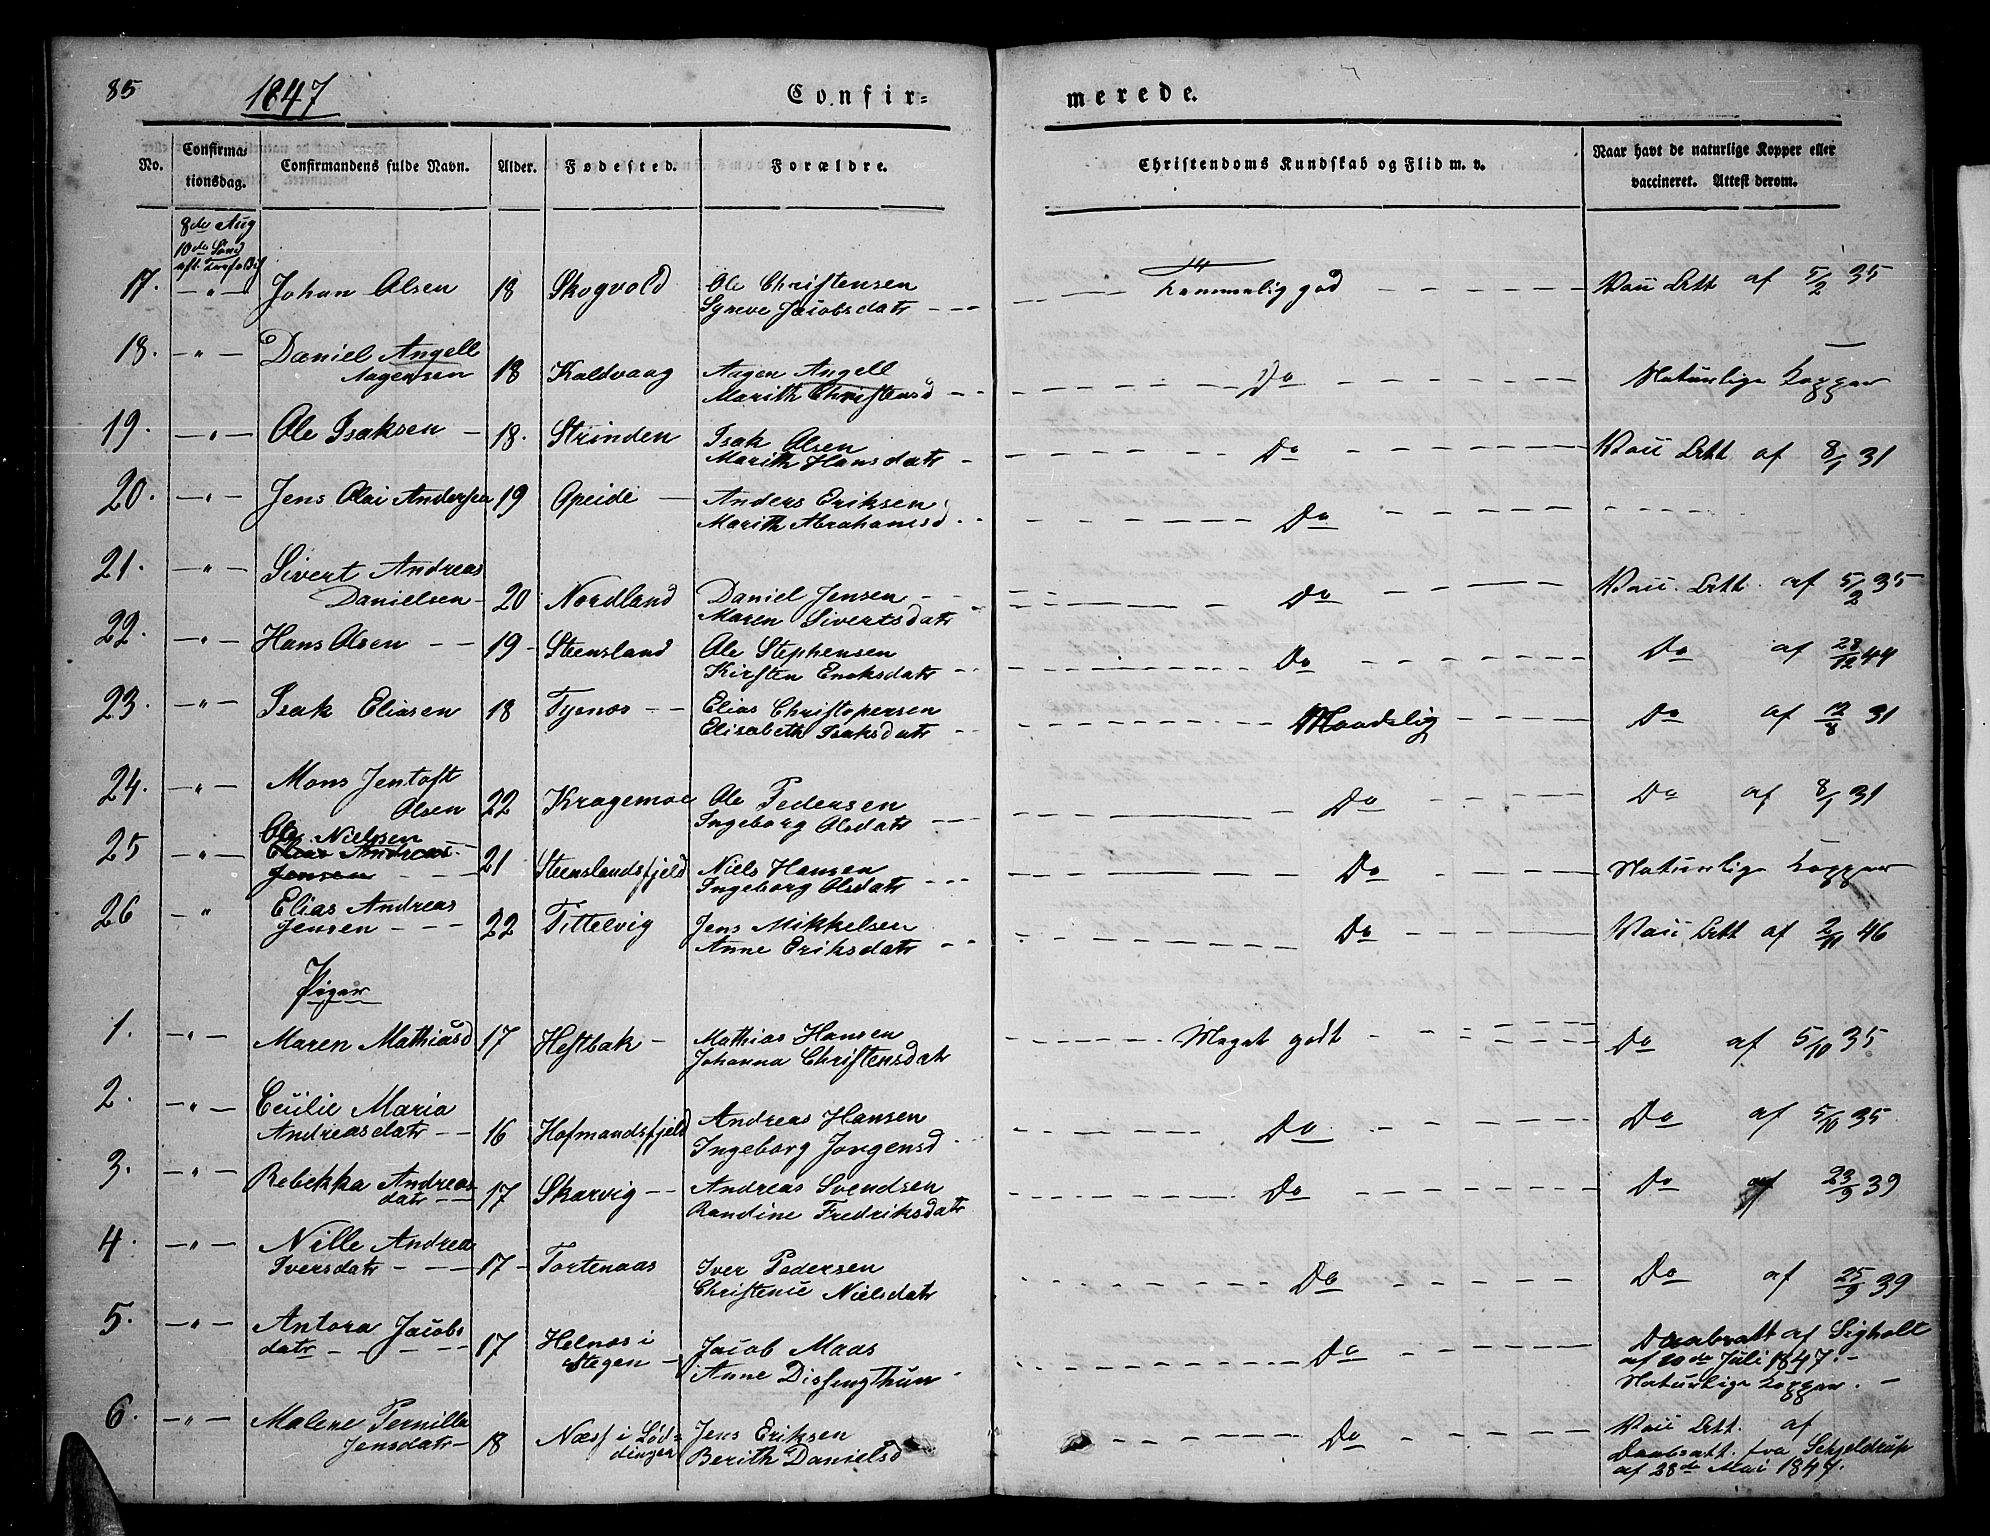 85 1847 Confir= merede.
No. Confirma- tionsdag. Confirmandens fulde Navn. Alder. Fødested. Forældre. Christendoms Kundskab og Flid m. v. Naar havt de naturlige Kopper eller vaccineret. Attest derom.
8de Aug
10de Sønd
eft. Trefoldigh
17. — " — Johan Olsen 18 Skogvold Ole Christensen temmelig god Vacc. Att af 5/2 35
Syneve Jacobsdatr
18. — " — Daniel Angell
Aagensen 18 Kaldvaag Aagen Angell Do Naturlige Kopper
Marith Christensd
19. — " — Ole Isaksen 18. Strinden Isak Olsen Do Vacc Att af 8/1 31
Marith Hansdatr
20. — " — Jens Olai Andersen 19 Opeide Anders Eriksen Do
Marith Abrahamsd.
21. — " — Sivert Andreas
Danielsen 20 Nordland Daniel Jensen Do Vacc. Att. af 5/2 35
Maren Sivertsdatr
22. — " — Hans Olsen 19 Steensland Ole Stephensen Do Do af 28/12 44
Kirsten Enoksdatr
23. — " — Isak Eliasen 18 Tysnes Elias Christopersen Maadelig Do af 12/8 31
Elisabeth Isaksdatr
24. — " — Mons Jentoft
Olsen 22 Kragemoe Ole Pedersen Do Do af 8/1 31
Ingeborg Olsdatr
Ole Nielsen
25 — " — Elias Andreas
Jensen 21 Steenslandsfjeld Niels Hansen Do Naturlige Kopper
Ingeborg Olsdatr
26 — " Elias Andreas
Jensen 22 Tittelvig Jens Mikkelsen Do Vacc Att af 2/11 46
Anne Eriksdatr
Piger
1. — " — Maren Mathiasd 17 Hestbak Mathias Hansen Meget godt Do af 5/10 35
Johanna Christensdatr
2. — " — Cecilie Maria
Andreasdatr 16 Hofmandsfjeld Andreas Hansen Do Do af 5/10 35
Ingeborg Jørgensd
3. — " — Rebekka Andreas
datr 17 Skarvig Andreas Svendsen Do Do af 23/9 39
Randine Fredriksdatr
4. — " — Nille Andrea
Iversdatr 17 Tortenaas Iver Pedersen Do Do af 25/9 39
Christence Nielsdatr
5. — " — Antora Jacobs
datr 17 Helnæs i
Stegen Jacob Maas Do Daabsatt af Sigholt
af 20de Juli 1847.
Anne Naturlige Kopper.
6. — " — Malene Pernilla
Jensdatr 18 Næss i Lød=
dingen Jens Eriksen Do Vacc Att. af
Berith Danielsd Daabsatt. fra Schjeldrup
af 28de Mai 1847.